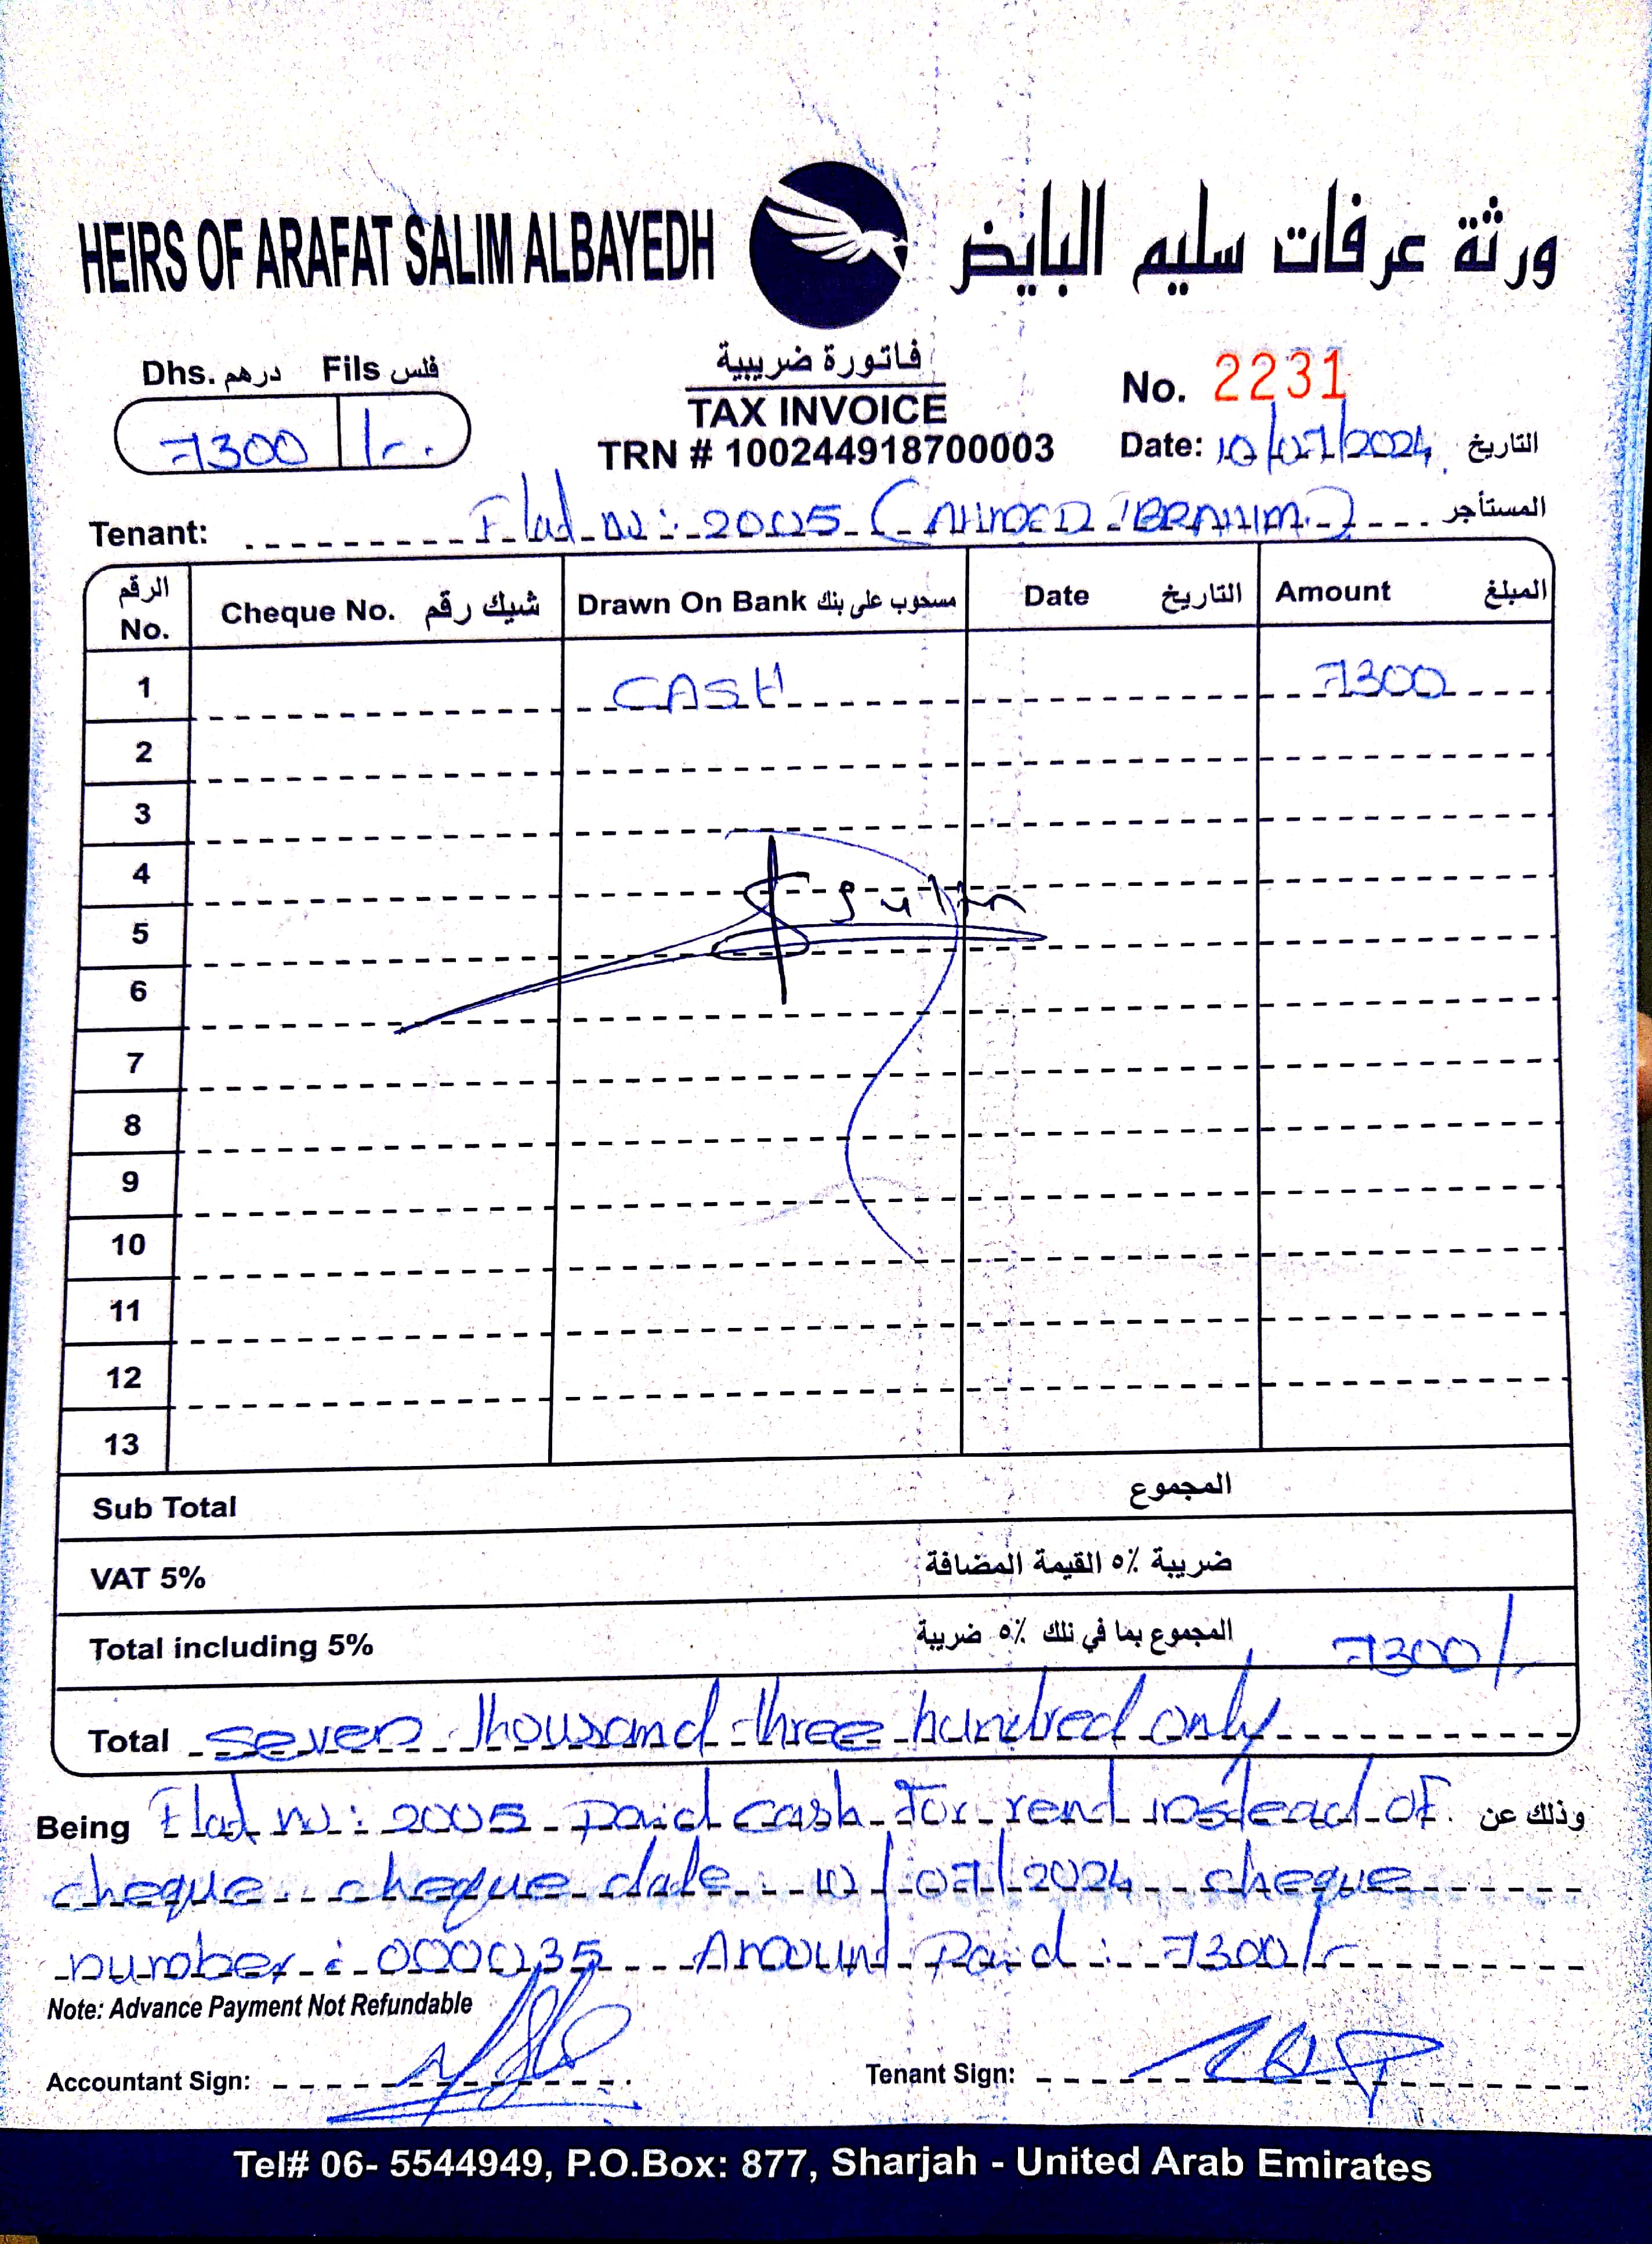 HEIRS OF ARAFAT SALIM ALBAYEDH ورثة عرفات سليم البايض
Dhs. درهم Fils فلس
7300 /-
فاتورة ضريبية
TAX INVOICE
TRN # 100244918700003
No. 2231
Date: 10/07/2024 التاريخ
Tenant: Flat no: 2005 (AHMED IBRAHIM) المستأجر
الرقم No. Cheque No. شيك رقم Drawn On Bank مسحوب على بنك Date التاريخ Amount المبلغ
1 CASH 7300
2
3
4
5
6
7
8
9
10
11
12
13
Sub Total المجموع
VAT 5% ضريبة ٥٪ القيمة المضافة
Total including 5% المجموع بما في تلك ٥٪ ضريبة 7300/-
Total seven thousand three hundred only
Being Flat no: 2005 paid cash for rent instead of وذلك عن
cheque cheque date: 10/07/2024 cheque
number: 000035 Amount Paid: 7300/-
Note: Advance Payment Not Refundable
Accountant Sign: Tenant Sign:
Tel# 06- 5544949, P.O.Box: 877, Sharjah - United Arab Emirates